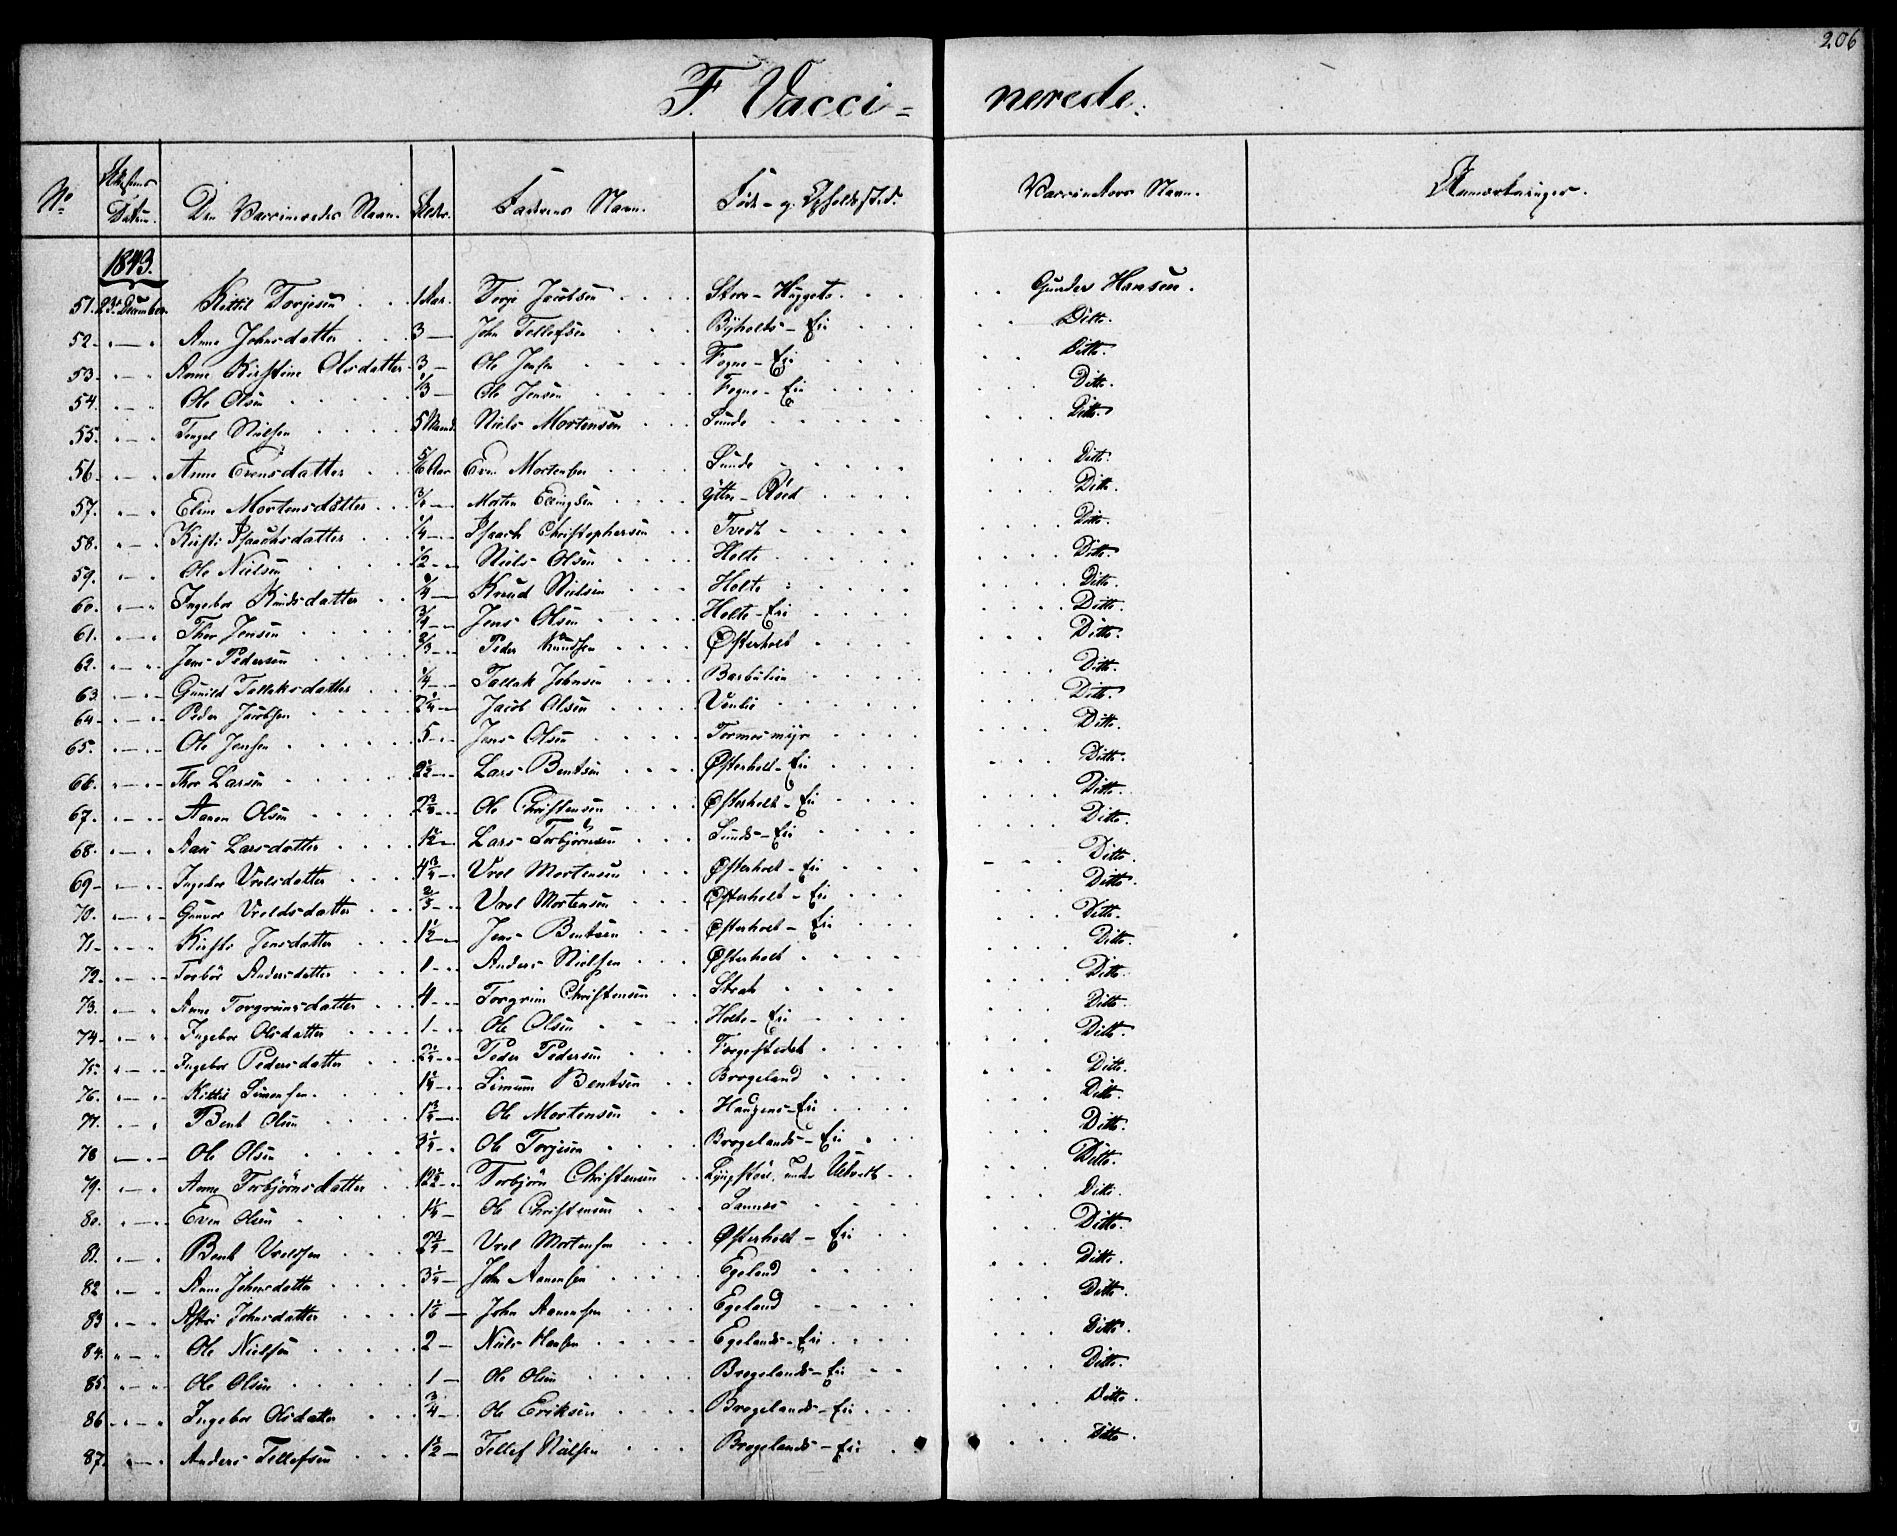 206
F. Vacci- nerede.
No Attestens Datum. Den Vaccineredes Navn. Alder. Faderens Navn. Føde- og Opholdssted. Vaccinateurs Navn. Anmærkninger.
1843.
51. 23de December. Kittil Torjesen 1 Aar. Torje Jacobsen Store-Hyggets Gunder Hansen.
52. Anne Johnsdatter 3 John Tellefsen Eie Ditto.
53. Anne Kirstine Olsdatter 3 Ole Jensen Fogne-Eie Ditto.
54. Ole Olsen 1/3 Ole Jensen Fogne-Eie Ditto.
55. Tengel Nielsen 5 Maand. Niels Mortensen Sunde Ditto.
56. Anne Evensdatter 5/6 Aar Even Mortensen Sunde Ditto.
57. Eline Mortensdatter Morten Ellingsen Ytre-Røed Ditto.
58. Kirsti Isaachsdatter 1/4 Isaach Christophersen Tvedt Ditto.
59. Ole Nielsen 1/2 Niels Olsen Holte Ditto.
60. Ingebor Knudsdatter Knud Nielsen Holte Ditto.
61. Thor Jensen 3/4 Jens Olsen Holte-Eie Ditto.
62. Jens Pedersen 2/3 Peder Knudsen Østerholt Ditto.
63. Gunild Tallaksdatter 1/4 Tallak Johnsen Barbulien Ditto.
64. Peder Jacobsen 2 1/4 Jacob Olsen Venlie Ditto.
65. Ole Jensen 5 Jens Olsen Tormosmyr Ditto.
66. Thor Larsen 2 1/2 Lars Bentsen Østerholt-Eie Ditto.
67. Aanon Olsen Ole Christensen Østerholt-Eie Ditto.
68. Aase Larsdatter 1 1/2 Lars Torbjørnsen Sunds-Eie Ditto.
69. Ingebor Vroldsdatter 4 3/4 Vrol Mortensen Østerholt-Eie Ditto.
70. Gunvor Vroldsdatter Vrol Mortensen Østerholt-Eie Ditto.
71. Kirsti Jensdatter 1 1/2 Jens Bentsen Østerholt-Eie Ditto.
72. Torbør Andersdatter 1 Anders Nielsen Østerholt Ditto.
73. Anne Torgrimsdatter 4 Torgrim Christensen Strat Ditto.
74. Ingebor Olsdatter 1 Ole Olsen Holte-Eie Ditto.
75. Ingebor Pedersdatter Peder Pedersen Torgestedet Ditto.
76. Kittil Simonsen. Simon Bentsen Brogeland Ditto.
77. Bent Olsen 1 3/4 Ole Mortensen Haugens-Eie Ditto.
78. Ole Olsen 3 1/4 Ole Torjesen Brogelands-Eie Ditto.
79. Anne Torbjørnsdatter 12 1/2 Torbjørn Christensen under Ditto.
80. Even Olsen 1 1/4 Ole Christensen Lannes Ditto.
81. Bent Vroldsen 2 3/4 Vrol Mortensen Østerholt-Eie Ditto.
82. Anne Johnsdatter 3 1/4 John Aanonsen Egeland Ditto.
83. Astri Johnsdatter John Aanonsen Egeland Ditto.
84. Ole Nielsen 2 Niels Hansen Egelands-Eie Ditto.
85. Ole Olsen 1 Ole Olsen Brogelands-Eie Ditto.
86. Ingebor Olsdatter 3/4 Ole Eriksen Brogelands-Eie Ditto.
87. Anders Tellefsen 1 1/2 Tellef Nielsen Brogelands-Eie Ditto.